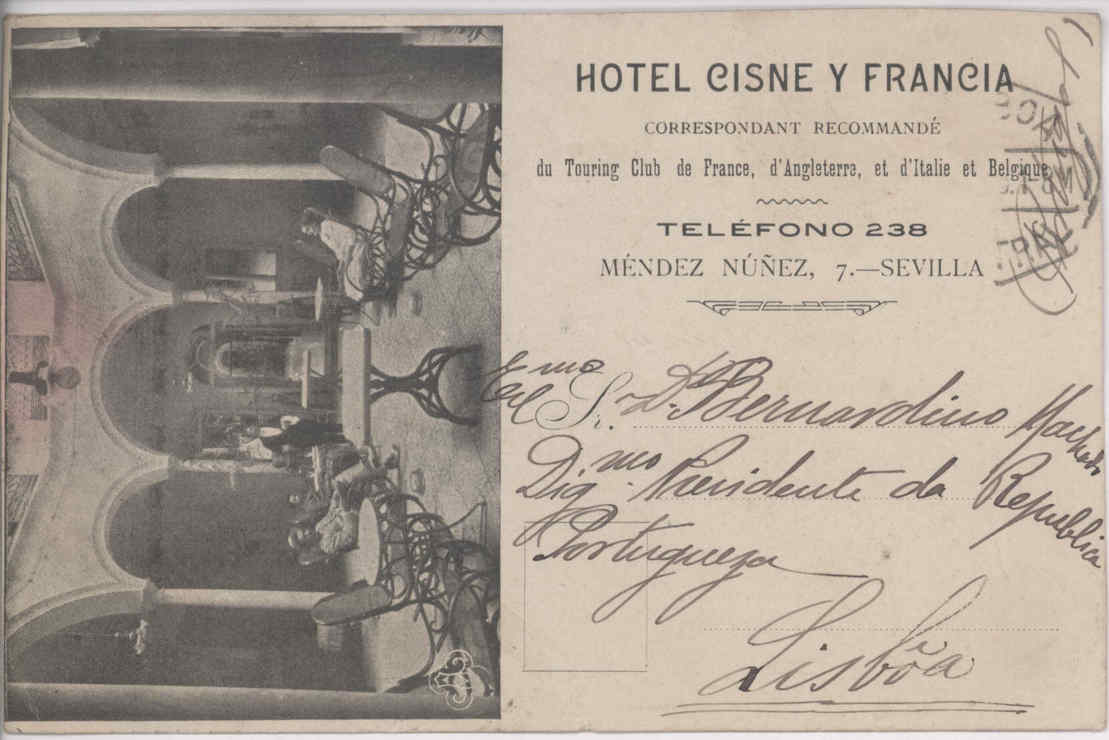 HOTEL CISNE Y FRANCIA
CORRESPONDANT RECOMMANDÉ
du Touring Club de France, d'Angleterre, et d'Italie et Belgique
TELÉFONO 238
MÉNDEZ NÚÑEZ, 7.—SEVILLA
Exmo Sr. Dr. Bernardino Machado
Dig.mo Presidente da Republica
Portugueza
Lisbôa